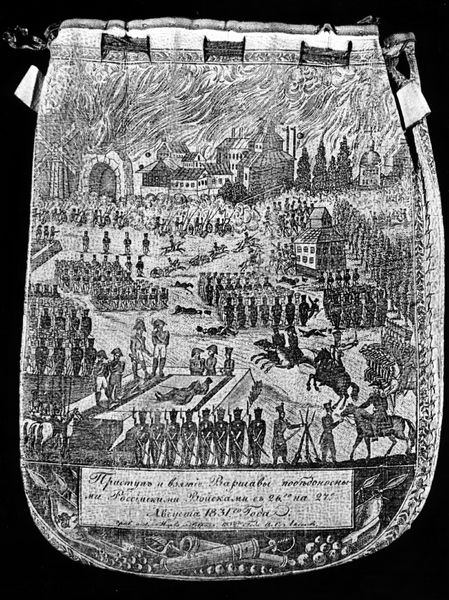 Приступъ и взятіе Варшавы побѣдоносны-
ми Россійскими Войсками съ 26го на 27е
Августа 1831го Года.